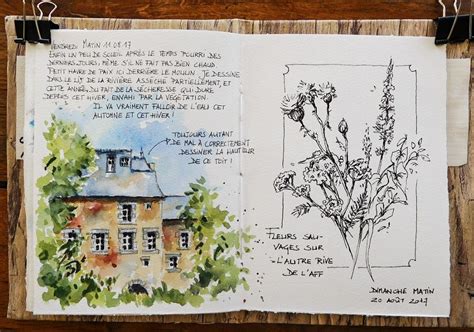 VENDREDI MATIN 11.08.17
ENFIN UN PEU DE SOLEIL APRÈS LE TEMPS POURRI DES
DERNIERS JOURS, MÊME S'IL NE FAIT PAS BIEN CHAUD
PETIT HAVRE DE PAIX ICI DERRIÈRE LE MOULIN. JE DESSINE
DANS LE LIT DE LA RIVIÈRE ASSÉCHÉ PARTIELLEMENT, ET
CETTE ANNÉE, DU FAIT DE LA SÉCHERESSE QUI DURE
DEPUIS CET HIVER, ENVAHI PAR LA VÉGÉTATION.
IL VA VRAIMENT FALLOIR DE L'EAU CET
AUTOMNE ET CET HIVER !
TOUJOURS AUTANT
DE MAL À CORRECTEMENT
DESSINER LA HAUTEUR
DE CE TOIT !
FLEURS SAU-
VAGES SUR
L'AUTRE RIVE
DE L'AFF
DIMANCHE MATIN
20 AOÛT 2017